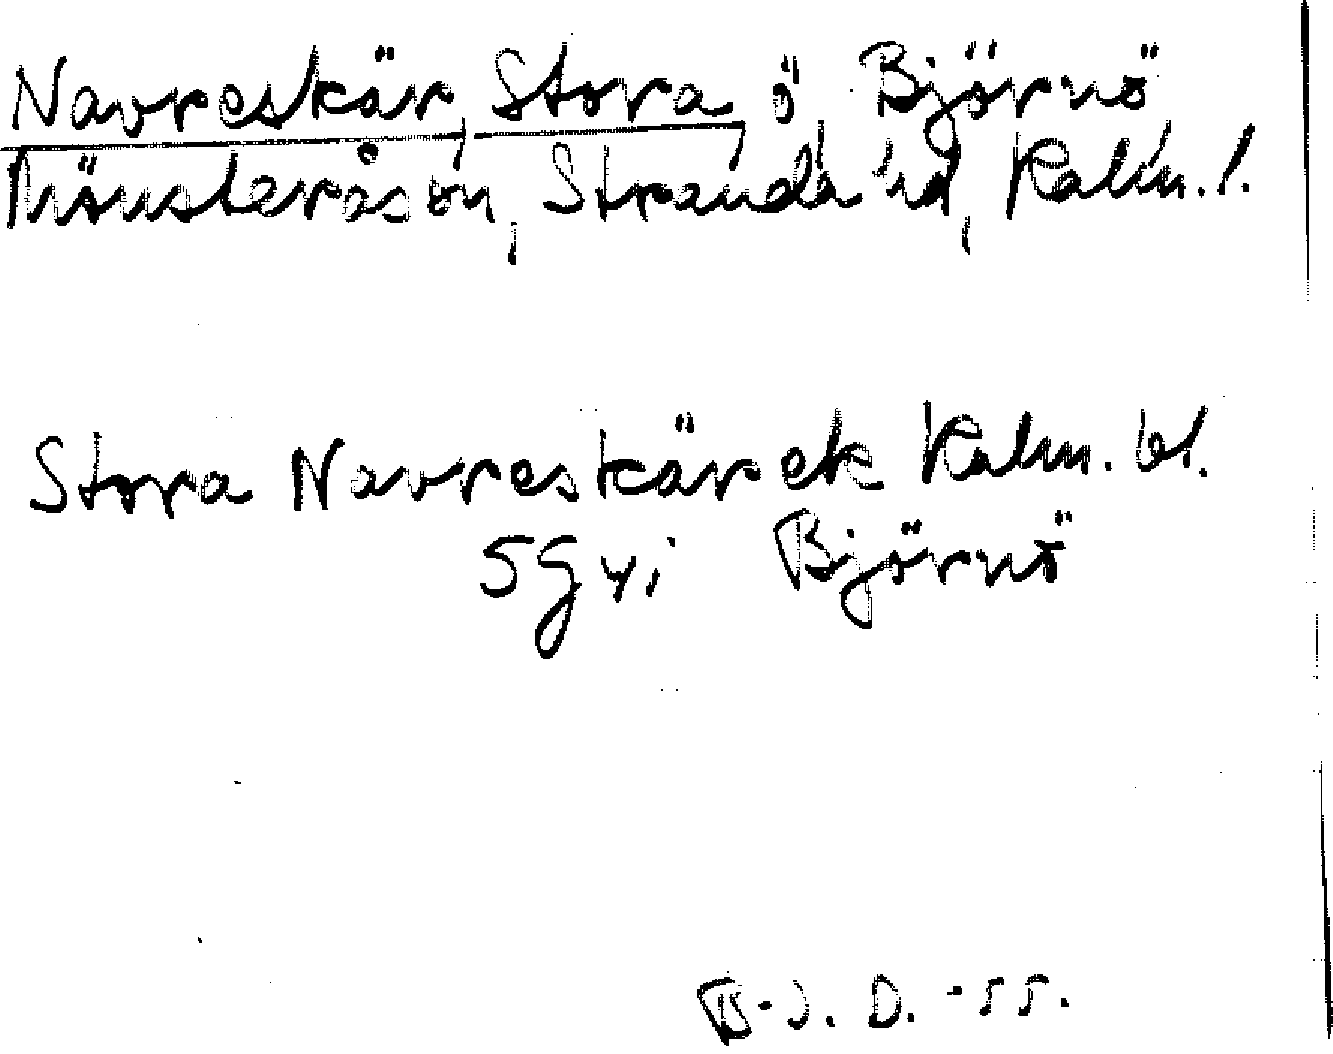 Navreskär, Stora, ö, Björnö
Mönsterås sn, Stranda hd, Kalm. l.
Stora Navreskär ek Kalm. bl.
5G yi Björnö
B-J. D. -55.